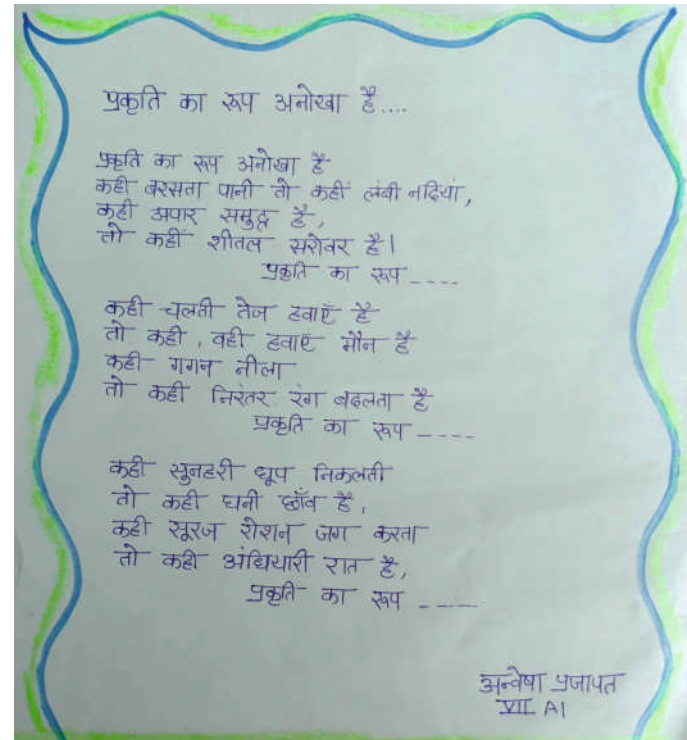 प्रकृति का रूप अनोखा है....
प्रकृति का रूप अनोखा है
कही बरसता पानी तो कहीं लंबी नदियां,
कही अपार समुद्र है,
तो कहीं शीतल सरोवर है।
प्रकृति का रूप ----
कही चलती तेज हवाएँ है
तो कही, वही हवाएँ मौन है
कही गगन नीला
तो कही निरंतर रंग बदलता है
प्रकृति का रूप ----
कही सुनहरी धूप निकलती
तो कही घनी छाँव है,
कही सूरज रोशन जग करता
तो कही अंधियारी रात है,
प्रकृति का रूप ----
अन्वेषा प्रजापत
VII A1